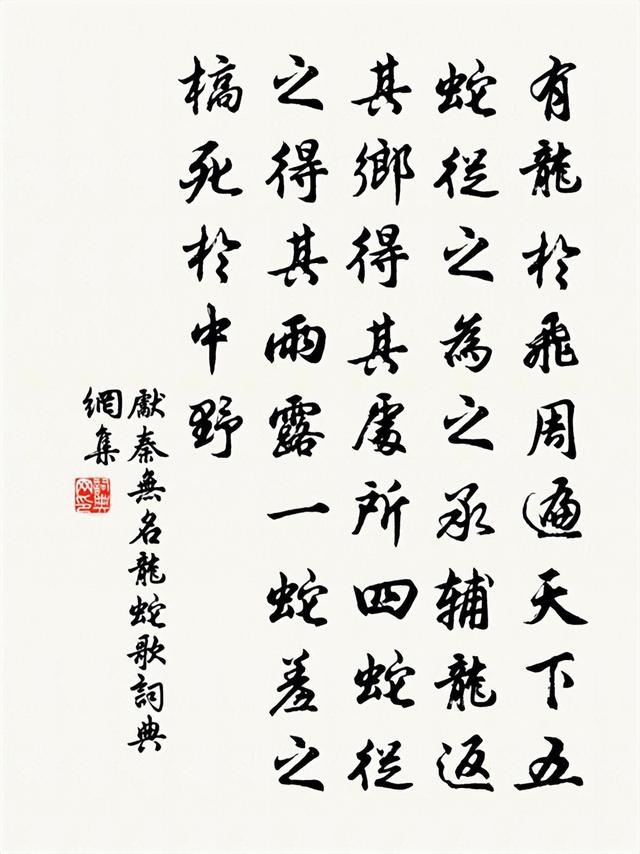 有龍於飛周遍天下五
蛇從之為之承輔龍返
其鄉得其處所四蛇從
之得其雨露一蛇羞之
槁死於中野
獻秦無名龍蛇歌詞典
網集
詞典网印